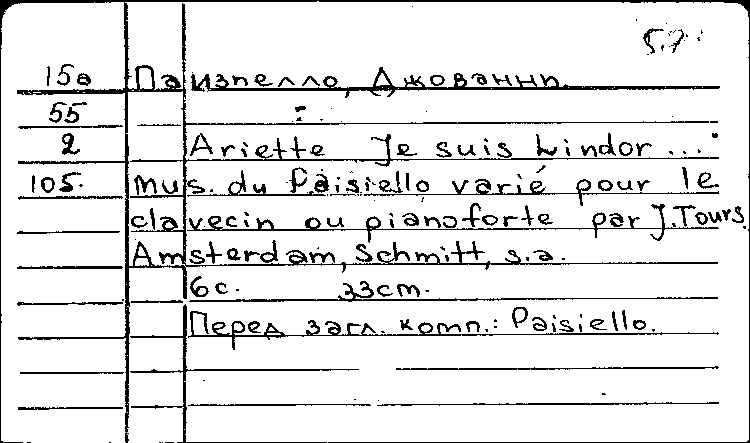 5.7
15а Паизиелло, Джованни.
55
2 Ariette Je suis Lindor ...
105. mus. du Paisiello varié pour le
clavecin ou pianoforte par J. Tours.
Amsterdam, Schmitt, s.a.
6 с. 33 cm.
Перед загл. комп.: Paisiello.